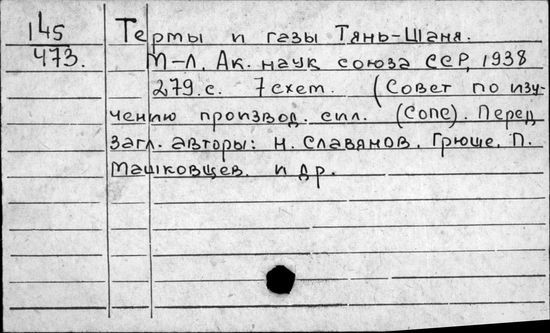 145 Термы и газы Тянь-Шаня.
473. М-Л. Ак. наук союза ССР, 1938
279.с. 7 схем. (Совет по изу-
чению производ. сил. (Сопс). Перед
загл. авторы: Н. Славянов. Грюше. П.
Машковцев. и др.